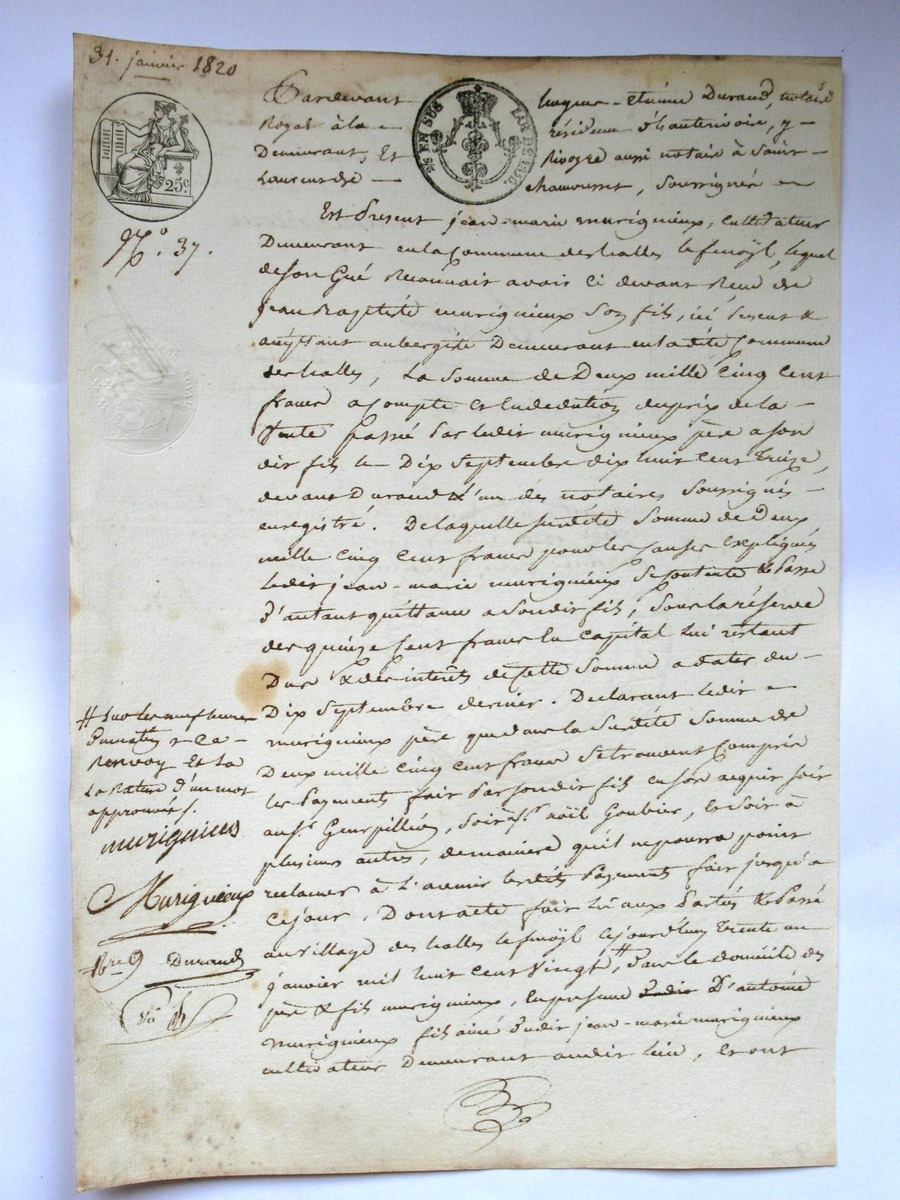 31. janvier 1820
25 EN SUS
LOI DE 1816.
25c.
N.º 37.
Pardevant Jacques-etienne Durand, notaire
Royal à la résidence d'hauterivoire, y
Demeurant, Et Rivoyre aussi notaire à Saint
Laurent de chamousset, soussignés
Est Present jean-marie murigneux, cultivateur
Demeurant en la Commune des halles le fenoÿl, lequel
de son Gré Reconnait avoir ci devant Reçu de
jean Baptiste murigneux Son fils, ici present &
acceptant aubergiste Demeurant en la dite Commune
des halles, La Somme de Deux mille Cinq Cent
francs a Compte et En deduction du prix de la
Vente passé Par ledit murigneux père a son
dit fils le Dix Septembre dix huit cent treize,
devant Durand L'un des notaires Soussignés
enregistré. De laquelle Susdite Somme de Deux
mille Cinq Cent francs pour les Causes Expliquées
Ledit jean-marie murigneux Se Contente & Passe
d'autant quittance a Son dit fils, Sous la réserve
des quinze Cent francs En Capital Lui restant
Dus & des interêts de cette Somme a dater du
Dix Septembre dernier. Declarant ledit
murigneux père que dans la Susdite Somme de
Deux mille Cinq Cent francs Se trouvent Compris
les Payements fait Par Son dit fils en son acquit soit
au sr. Guerpillion, soit à sr. noël Goubier, et soit à
plusieurs autres, de maniere qu'il ne pourra point
reclamer à L'avenir lesdits Payements fait jusqu'a
Ce jour, Dont acte fait Lu aux Parties & Passé
au village des halles le fenoÿl Ce jourd'hui trente un
janvier mil huit cent vingt #, dans le domicile des
père & fils murigneux, en presence dudit D'antoine
murigneux fils ainé dudit jean-marie murigneux
cultivateur Demeurant audit lieu, et ont
# Sur les neuf heures
Du matin & Ce
Renvoy Et La
La Rature d'un mot
approuvés.
murigneus
Murigneux
Durand